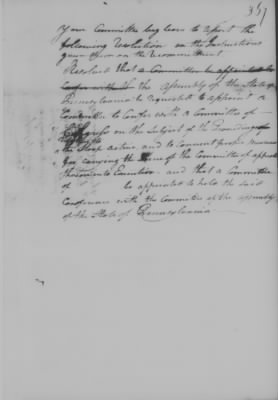 351
Your Committee beg leave to report the
following resolution on the Instructions
given them on the recommitment
Resolved that a Committee be appointed to
confer with the assembly of the State of
Pennsylvania be requested to appoint a
Committee to Confer with a Committee of
Congress on the Subject of the Proceedings
the Sloop active, and to concert proper measures
for carrying the of the Committee of appeals
into Execution. and that a Committee
of be appointed to hold the said
Conference with the Committee of the assembly
of the State of Pennsylvania